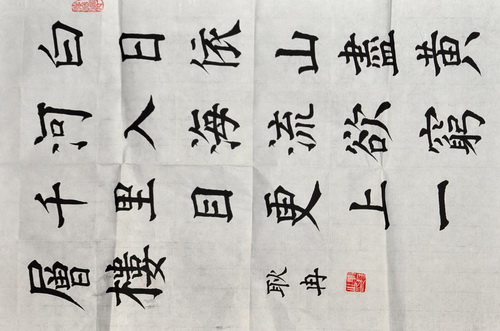 白日依山盡黃
河入海流欲窮
千里目更上一
層樓
耿冉